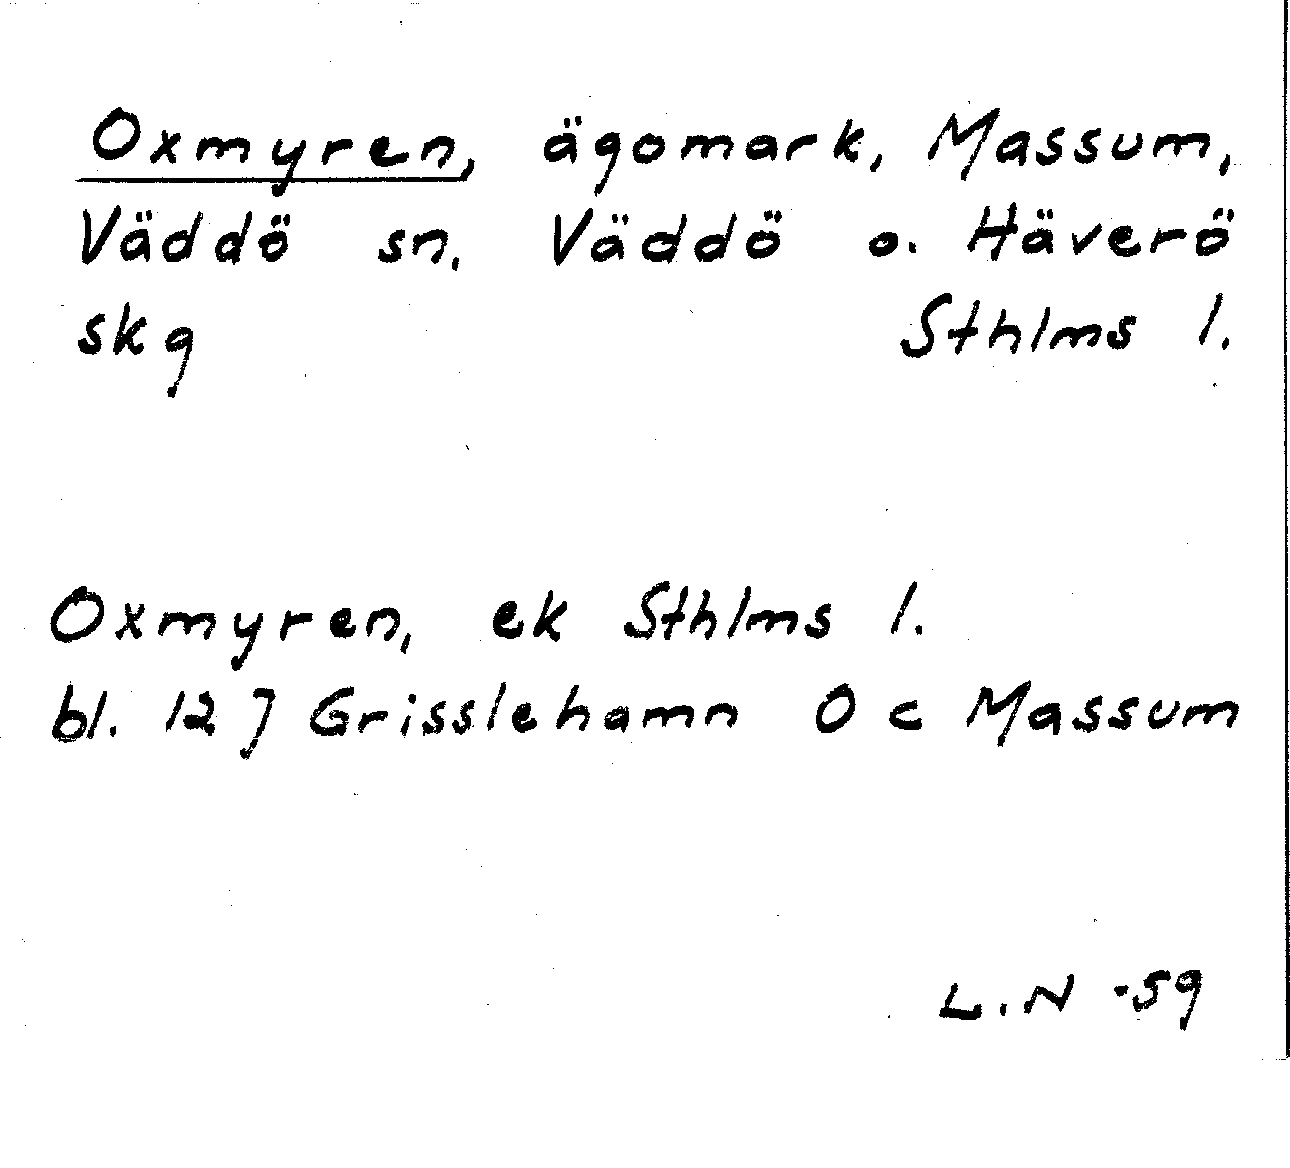 Oxmyren, ägomark, Massum,
Väddö sn. Väddö o. Häverö
skg Sthlms l.
Oxmyren, ek Sthlms l.
bl. 12 J Grisslehamn O c Massum
L.N -59